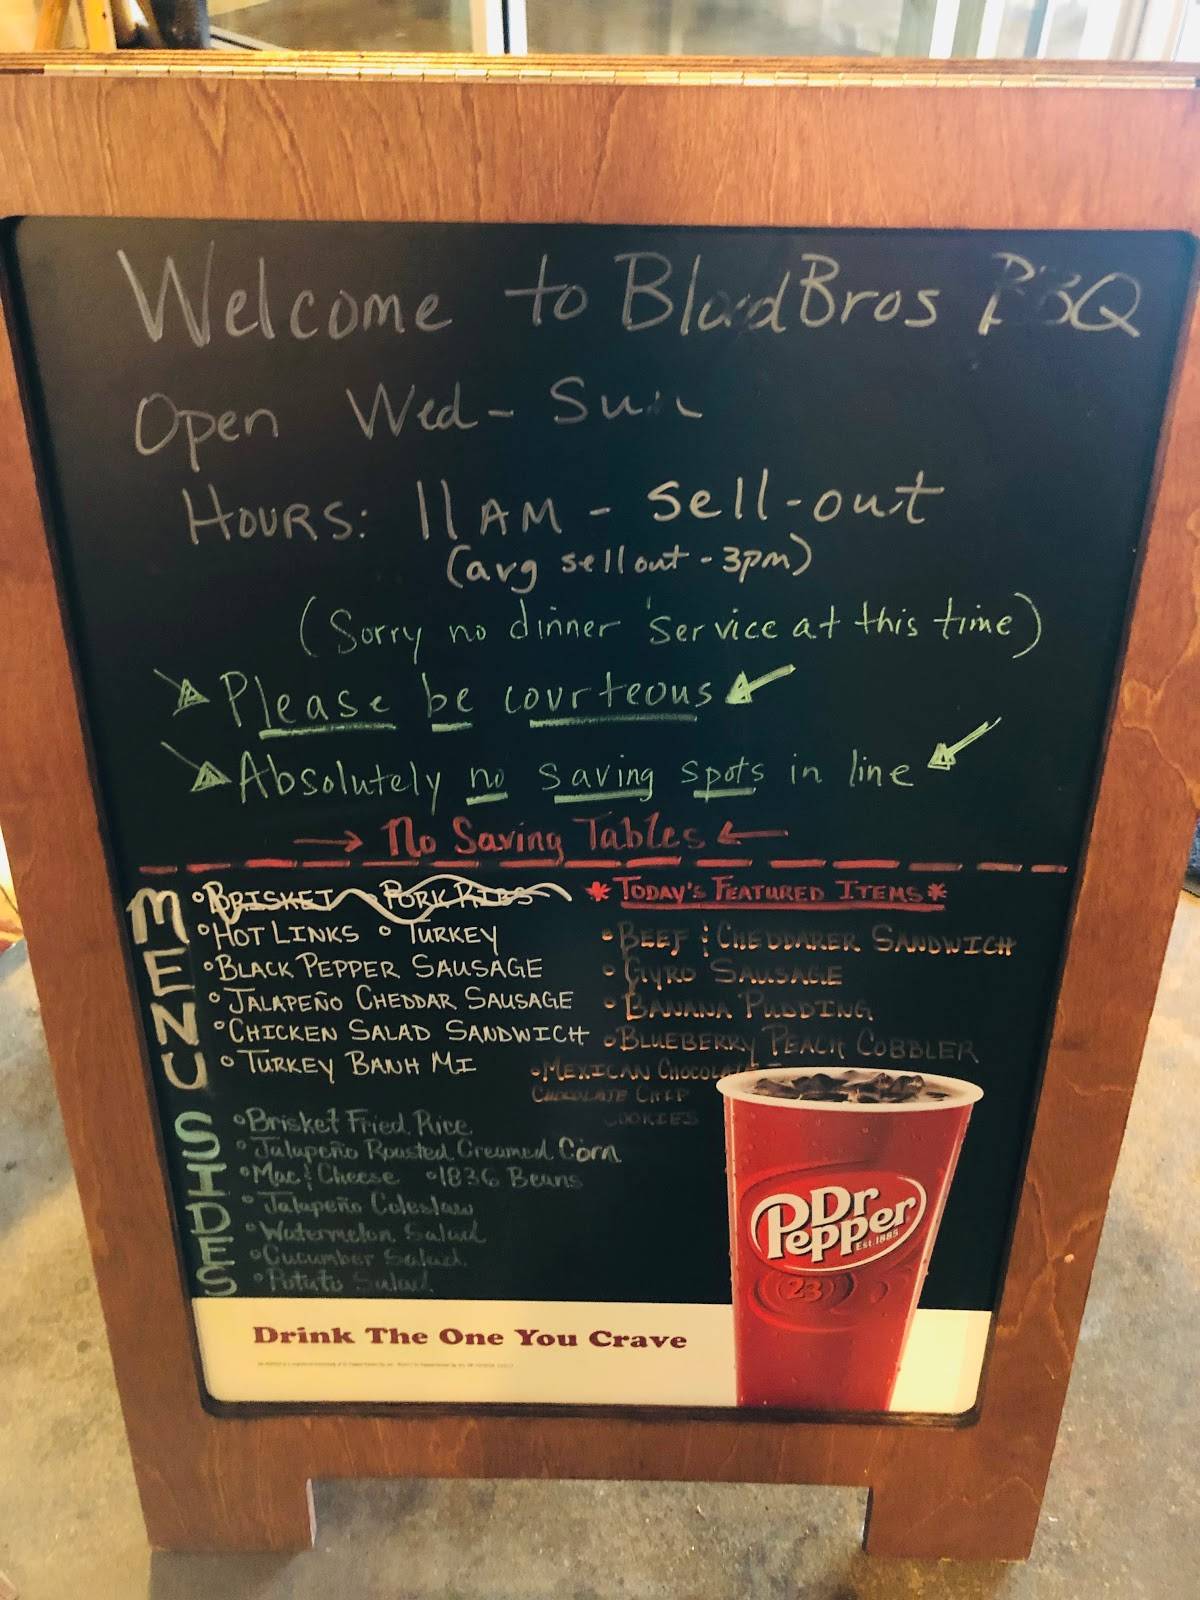 Welcome to Blood Bros BBQ
Open Wed - Sun
HOURS: 11 AM - Sell-out
(avg sell out - 3pm)
(Sorry no dinner service at this time)
Please be courteous
Absolutely no saving spots in line
→ No Saving Tables ←
MENU
• BRISKET • PORK RIBS
• HOT LINKS • TURKEY
• BLACK PEPPER SAUSAGE
• JALAPEÑO CHEDDAR SAUSAGE
• CHICKEN SALAD SANDWICH
• TURKEY BANH MI
* TODAY'S FEATURED ITEMS *
• BEEF & CHEDDARER SANDWICH
• GYRO SAUSAGE
• BANANA PUDDING
• BLUEBERRY PEACH COBBLER
• MEXICAN CHOCOLATE
CHOCOLATE CHIP
COOKIES
SIDES
• Brisket Fried Rice
• Jalapeño Roasted Creamed Corn
• Mac & Cheese • 1836 Beans
• Jalapeño Coleslaw
• Watermelon Salad
• Cucumber Salad
• Potato Salad
Dr
Pepper
Est. 1885
23
Drink The One You Crave